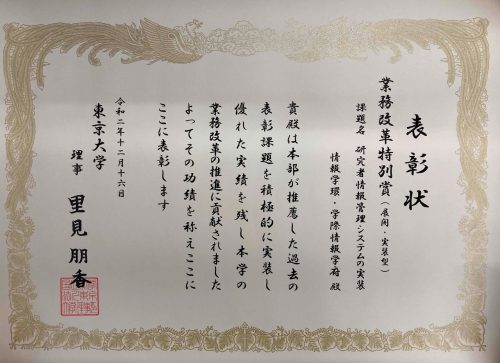 表彰状
業務改革特別賞（展開・実装型）
課題名 研究者情報管理システムの実装
情報学環・学際情報学府 殿
貴殿は本部が推薦した過去の
表彰課題を積極的に実装し
優れた実績を残し本学の
業務改革の推進に貢献されました
よってその功績を称えここに
ここに表彰します
令和二年十二月十六日
東京大学
理事 里見朋香